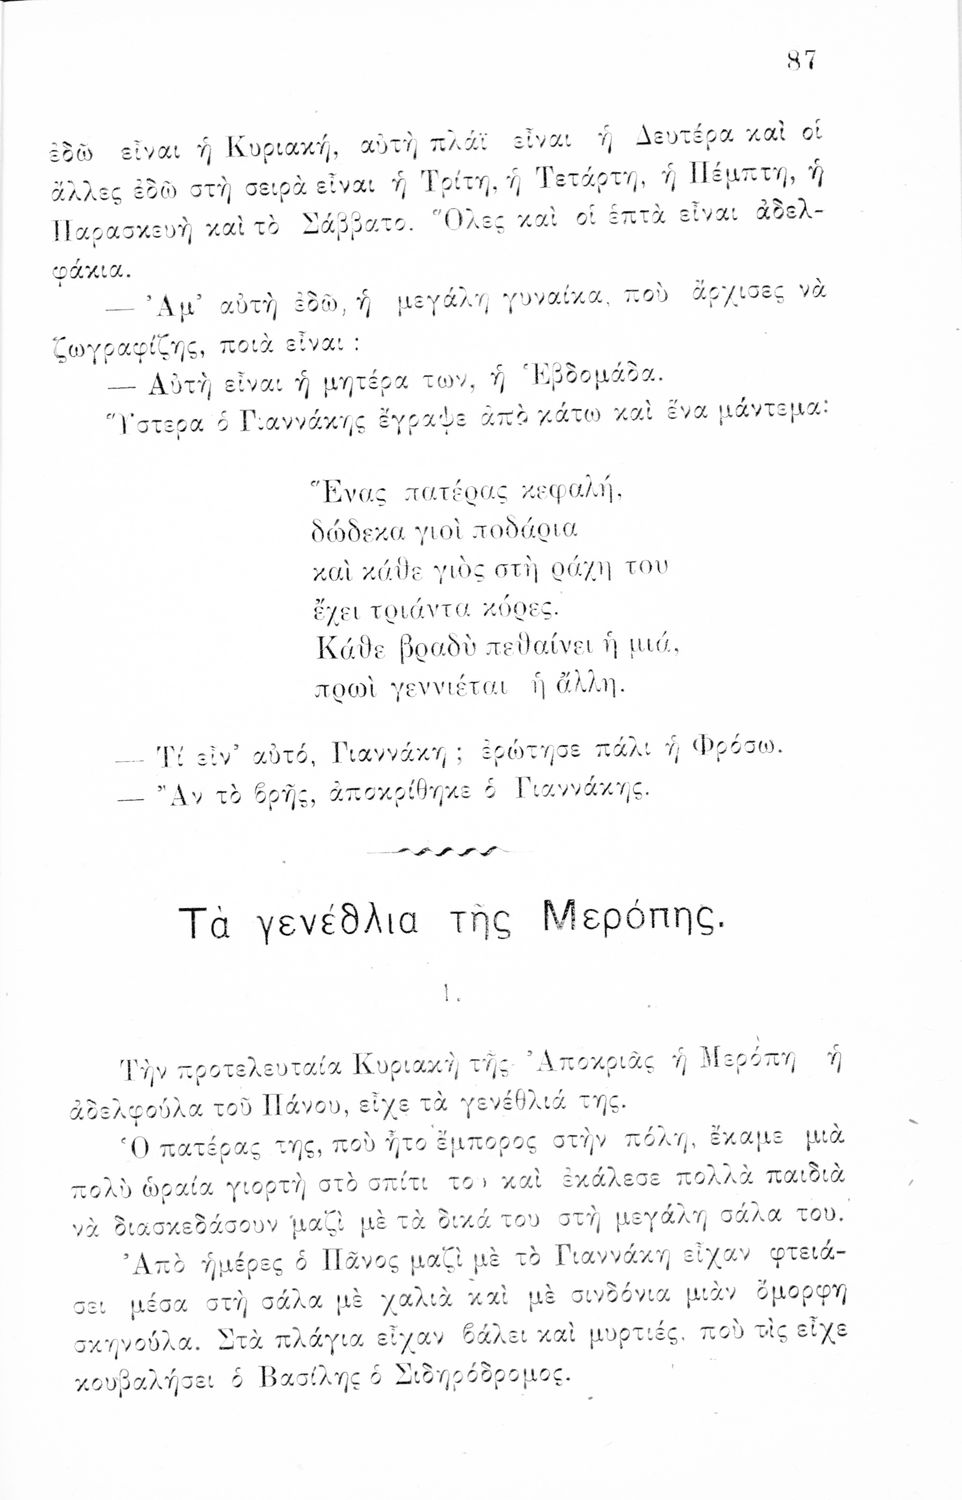 87
ἐδῶ εἶναι ἡ Κυριακή, αὐτὴ πλάϊ εἶναι ἡ Δευτέρα καὶ οἱ
ἄλλες ἐδῶ στὴ σειρὰ εἶναι ἡ Τρίτη, ἡ Τετάρτη, ἡ Πέμπτη, ἡ
Παρασκευὴ καὶ τὸ Σάββατο. Ὅλες καὶ οἱ ἑπτὰ εἶναι ἀδελ-
φάκια.
— Ἀμ’ αὐτὴ ἐδῶ, ἡ μεγάλη γυναίκα, ποὺ ἄρχισες νὰ
ζωγραφίζῃς, ποιὰ εἶναι ;
— Αὐτὴ εἶναι ἡ μητέρα των, ἡ Ἑβδομάδα.
Ὕστερα ὁ Γιαννάκης ἔγραψε ἀπὸ κάτω καὶ ἕνα μάντεμα:
Ἕνας πατέρας κεφαλή,
δώδεκα γιοὶ ποδάρια
καὶ κάθε γιὸς στὴ ράχη του
ἔχει τριάντα κόρες.
Κάθε βραδὺ πεθαίνει ἡ μιά,
πρωὶ γεννιέται ἡ ἄλλη.
— Τί εἶν’ αὐτό, Γιαννάκη ; ἐρώτησε πάλι ἡ Φρόσω.
— Ἂν τὸ βρῇς, ἀποκρίθηκε ὁ Γιαννάκης.
Τὰ γενέθλια τῆς Μερόπης.
1.
Τὴν προτελευταία Κυριακὴ τῆς Ἀποκριᾶς ἡ Μερόπη ἡ
ἀδελφούλα τοῦ Πάνου, εἶχε τὰ γενέθλιά της.
Ὁ πατέρας της, ποὺ ἦτο ἔμπορος στὴν πόλη, ἔκαμε μιὰ
πολὺ ὡραία γιορτὴ στὸ σπίτι του καὶ ἐκάλεσε πολλὰ παιδιὰ
νὰ διασκεδάσουν μαζὶ μὲ τὰ δικά του στὴ μεγάλη σάλα του.
Ἀπὸ ἡμέρες ὁ Πᾶνος μαζὶ μὲ τὸ Γιαννάκη εἶχαν φτειά-
σει μέσα στὴ σάλα μὲ χαλιὰ καὶ μὲ σινδόνια μιὰν ὄμορφη
σκηνούλα. Στὰ πλάγια εἶχαν βάλει καὶ μυρτιές, ποὺ τὶς εἶχε
κουβαλήσει ὁ Βασίλης ὁ Σιδηρόδρομος.